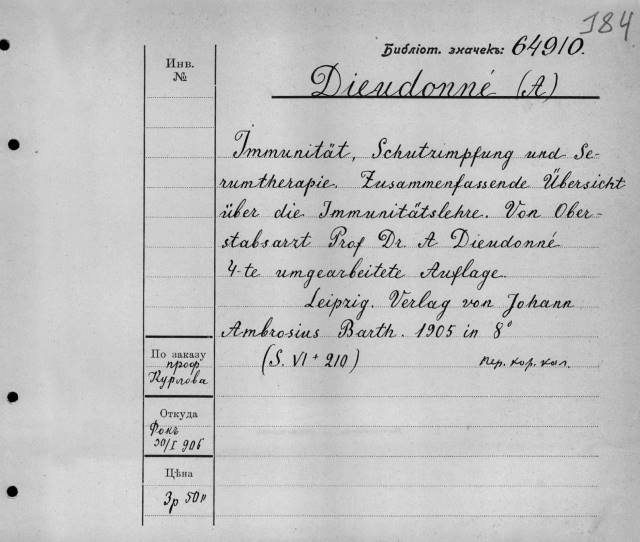 184
Библіот. значекъ: 64910.
Инв.
№
Dieudonné (A)
Immunität, Schutzimpfung und Se-
rumtherapie. Zusammenfassende Übersicht
über die Immunitätslehre. Von Ober-
stabsarzt Prof Dr. A Dieudonné
4-te umgearbeitete Auflage.
Leipzig. Verlag von Johann
Ambrosius Barth. 1905 in 8°
(S. VI + 210)
пер. кор. кал.
По заказу
проф
Курлова
Откуда
Фокъ
30/I 906
Цѣна
3р 50к